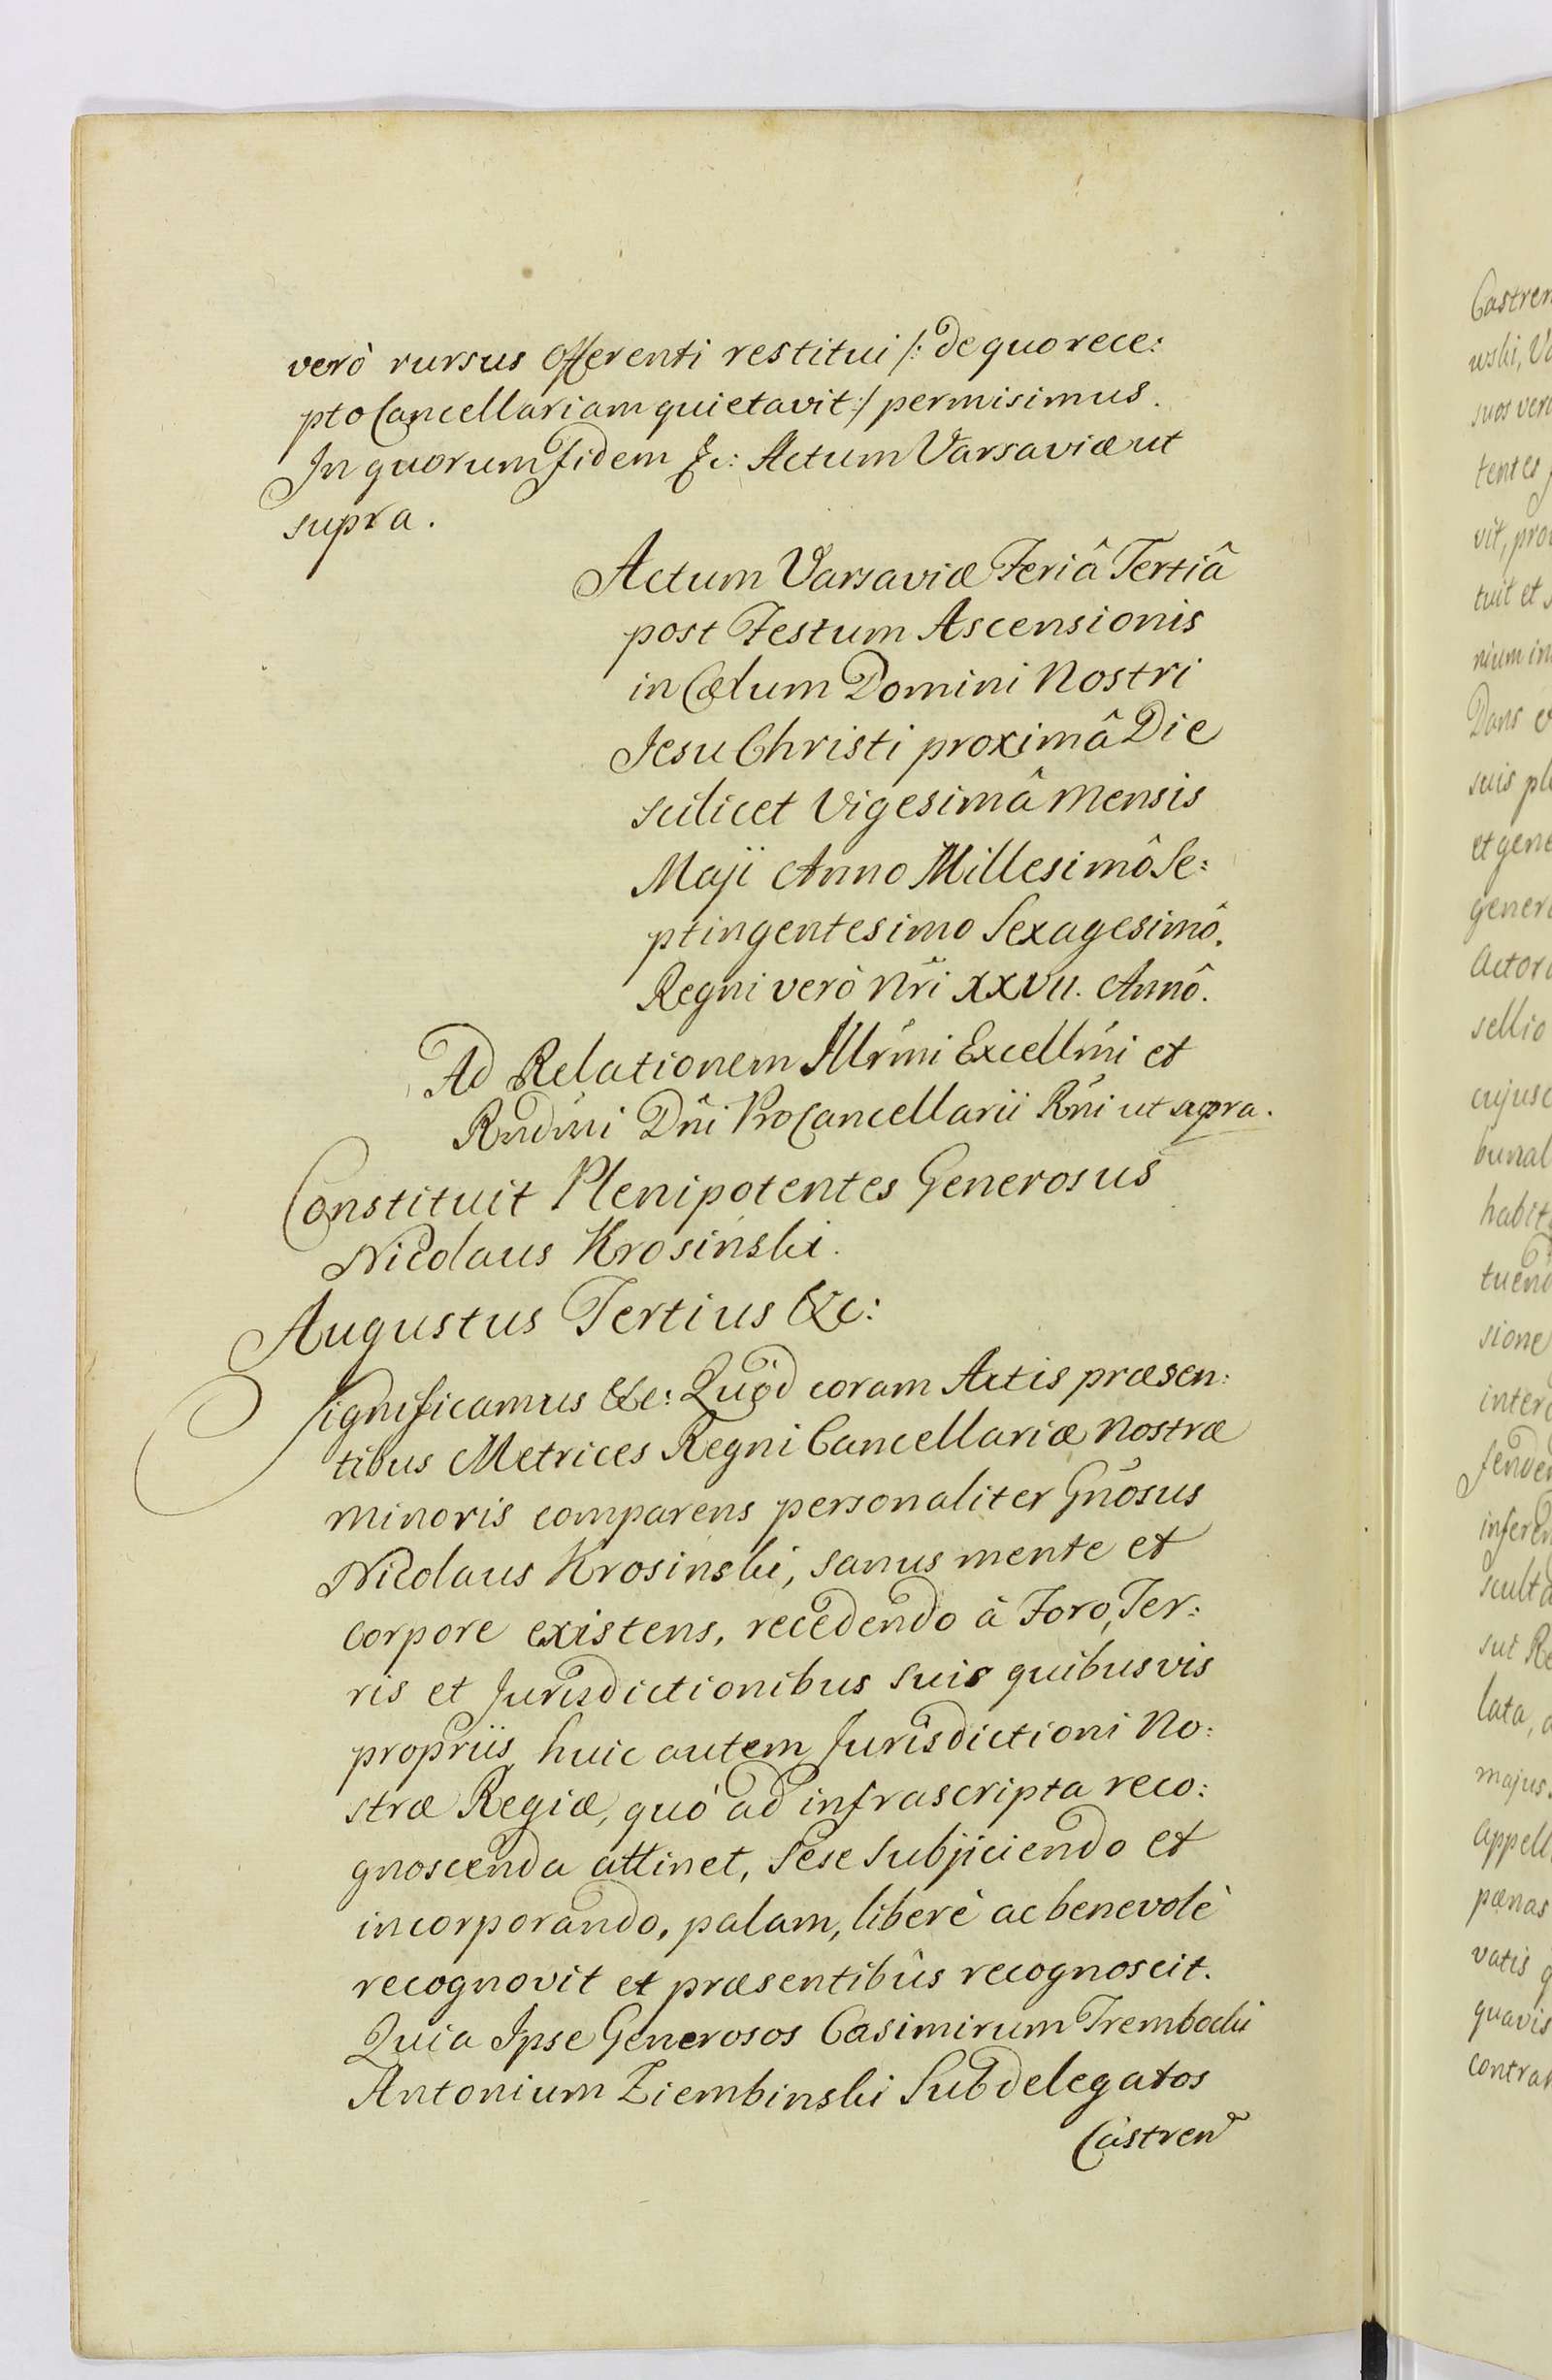 verò rursus Offerenti restitui /: de quo rece:
pto Cancellariam quietavit :/ permisimus.
In quorum fidem &c: Actum Varsaviæ ut
supra.
Actum Varsaviæ Feriâ Tertiâ
post Festum Ascensionis
in Cælum Domini Nostri
Jesu Christi proximâ Die
scilicet Vigesimâ Mensis
Maji Anno Millesimô Se:
ptingentesimo Sexagesimô.
Regni verò Nr̃i XXVII. Annô.
Ad Relationem Illr̃mi Excellm̃i et
Rndm̃i Dn̄i ProCancellarii Rn̄i ut supra.
Constituit Plenipotentes Generosus
Nicolaus Krosinski.
Augustus Tertius &c:
Significamus &c: Quòd coram Actis præsen:
tibus Metrices Regni Cancellariæ Nostræ
Minoris comparens personaliter Gñosus
Nicolaus Krosinski, sanus mente et
corpore existens, recedendo à Foro, Ter:
ris et Jurisdictionibus suis quibusvis
propriis, huic autem Jurisdictioni No:
stræ Regiæ, quò ad infrascripta reco:
gnoscenda attinet, sese subjiciendo et
incorporando, palam, liberè ac benevolè
recognovit et præsentibûs recognoscit.
Quia Ipse Generosos Casimirum Trembecki
Antonium Ziembinski Subdelegatos
Castren
Castren
wski, Va
suos ver
tentes
vit, pro
tuit et
nium in
Dans
suis pl
et gene
genera
Actor
sellio
cujusc
bunal
habit
tuend
sione
inter
fenden
inferen
sculta
sui Re
lata,
majus
appell
pœnas
vatis q
quavis
contra